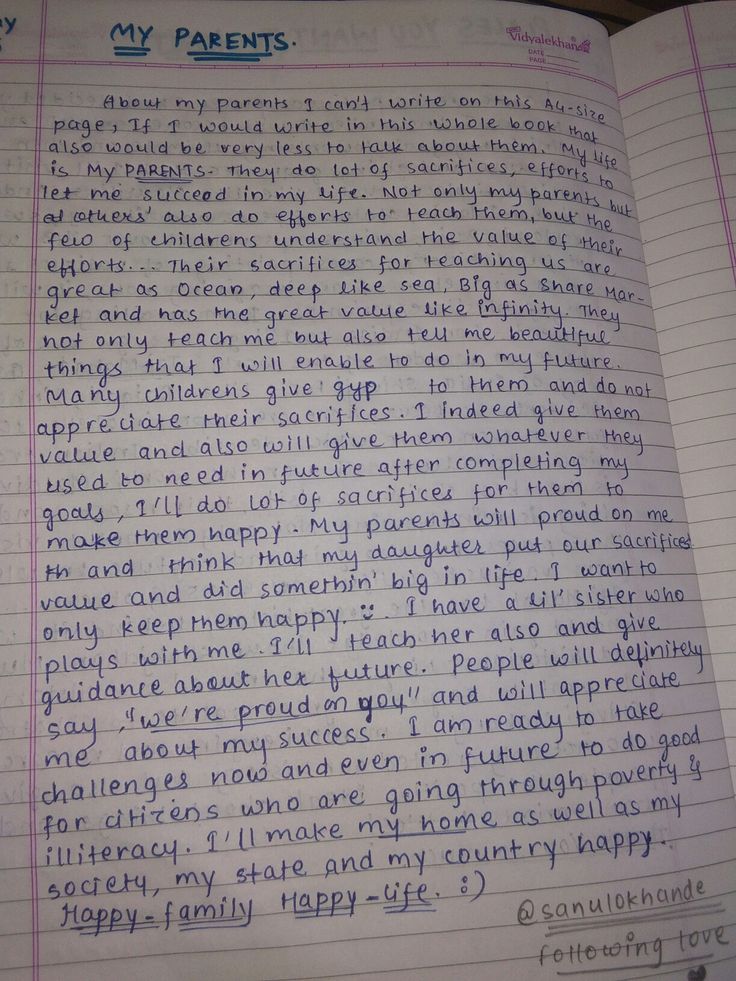 MY PARENTS.
Vidyalekhan
DATE
PAGE
About my parents I can't write on this A4-size
page, If I would write in this whole book that
also would be very less to talk about them. My life
is My PARENTS. They do lot of sacrifices, efforts to
let me succeed in my life. Not only my parents but
others' also do efforts to teach them, but the
few of childrens understand the value of their
efforts... Their sacrifices for teaching us are
great as Ocean, deep like sea, Big as Share Mar-
ket and has the great value like infinity. They
not only teach me but also tell me beautiful
things that I will enable to do in my future.
Many childrens give gyp to them and do not
appreciate their sacrifices. I indeed give them
value and also will give them whatever they
used to need in future after completing my
goals, I'll do lot of sacrifices for them to
make them happy. My parents will proud on me
th and think that my daughter put our sacrifices
value and did somethin' big in life. I want to
only keep them happy. :) . I have a lil' sister who
plays with me. I'll teach her also and give
guidance about her future. People will definitely
say, "we're proud on you" and will appreciate
me about my success. I am ready to take
challenges now and even in future to do good
for citizens who are going through poverty &
illiteracy. I'll make my home as well as my
society, my state and my country happy.
Happy-family Happy-life. :)
@sanulokhande
following love